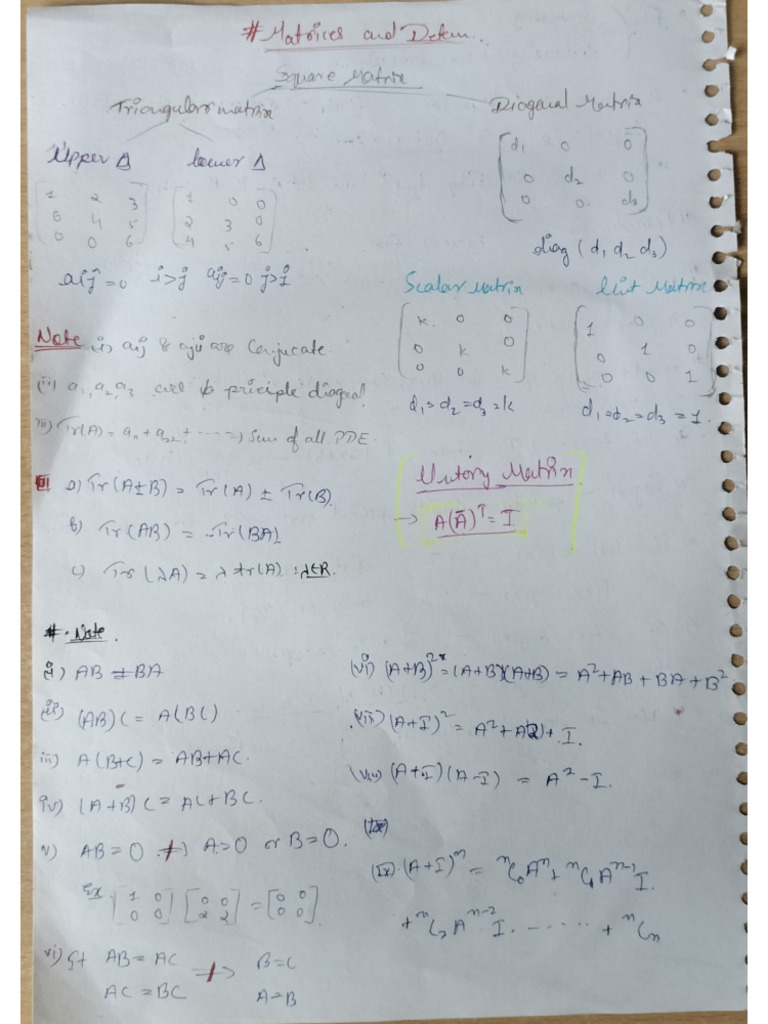 # Matrices and Determ...
Square Matrix
Triangular matrix
Diagonal Matrix
Upper Δ
lower Δ
[1 2 3
0 4 5
0 0 6]
[1 0 0
2 3 0
4 5 6]
[d1 0 0
0 d2 0
0 0 d3]
diag (d1 d2 d3)
aij = 0 i>j aij = 0 j>i
Scalar Matrix
Unit Matrix
[k 0 0
0 k 0
0 0 k]
[1 0 0
0 1 0
0 0 1]
d1 = d2 = d3 = k
d1 = d2 = d3 = 1.
Note (i) aij & aji are Conjucate.
(ii) a1, a2, a3 are priciple diagonal
iii) Tr(A) = a11 + a22 + ----- => Sum of all PDE.
Unitory Matrix
→ A(Ā)ᵀ = I
a) Tr(A±B) = Tr(A) ± Tr(B).
b) Tr(AB) = Tr(BA)
c) Tr(λA) = λ tr(A) : λ∈R.
# Note.
(i) AB ≠ BA
(ii) (AB)C = A(BC)
iii) A(B+C) = AB+AC.
iv) (A+B)C = AC+BC.
v) AB = 0 ≠> A=0 or B=0.
Ex [1 0
0 0] [0 0
2 2] = [0 0
0 0].
vi) If AB = AC ≠> B=C
AC = BC A=B
(vi) (A+B)² = (A+B)(A+B) = A² + AB + BA + B²
(vii) (A+I)² = A² + A2 + I.
(viii) (A+I)(A-I) = A² - I.
(ix)
(ix). (A+I)ⁿ = ⁿC₀Aⁿ + ⁿC₁Aⁿ⁻¹I.
+ ⁿC₂Aⁿ⁻² I. - - - - - + ⁿCₙ